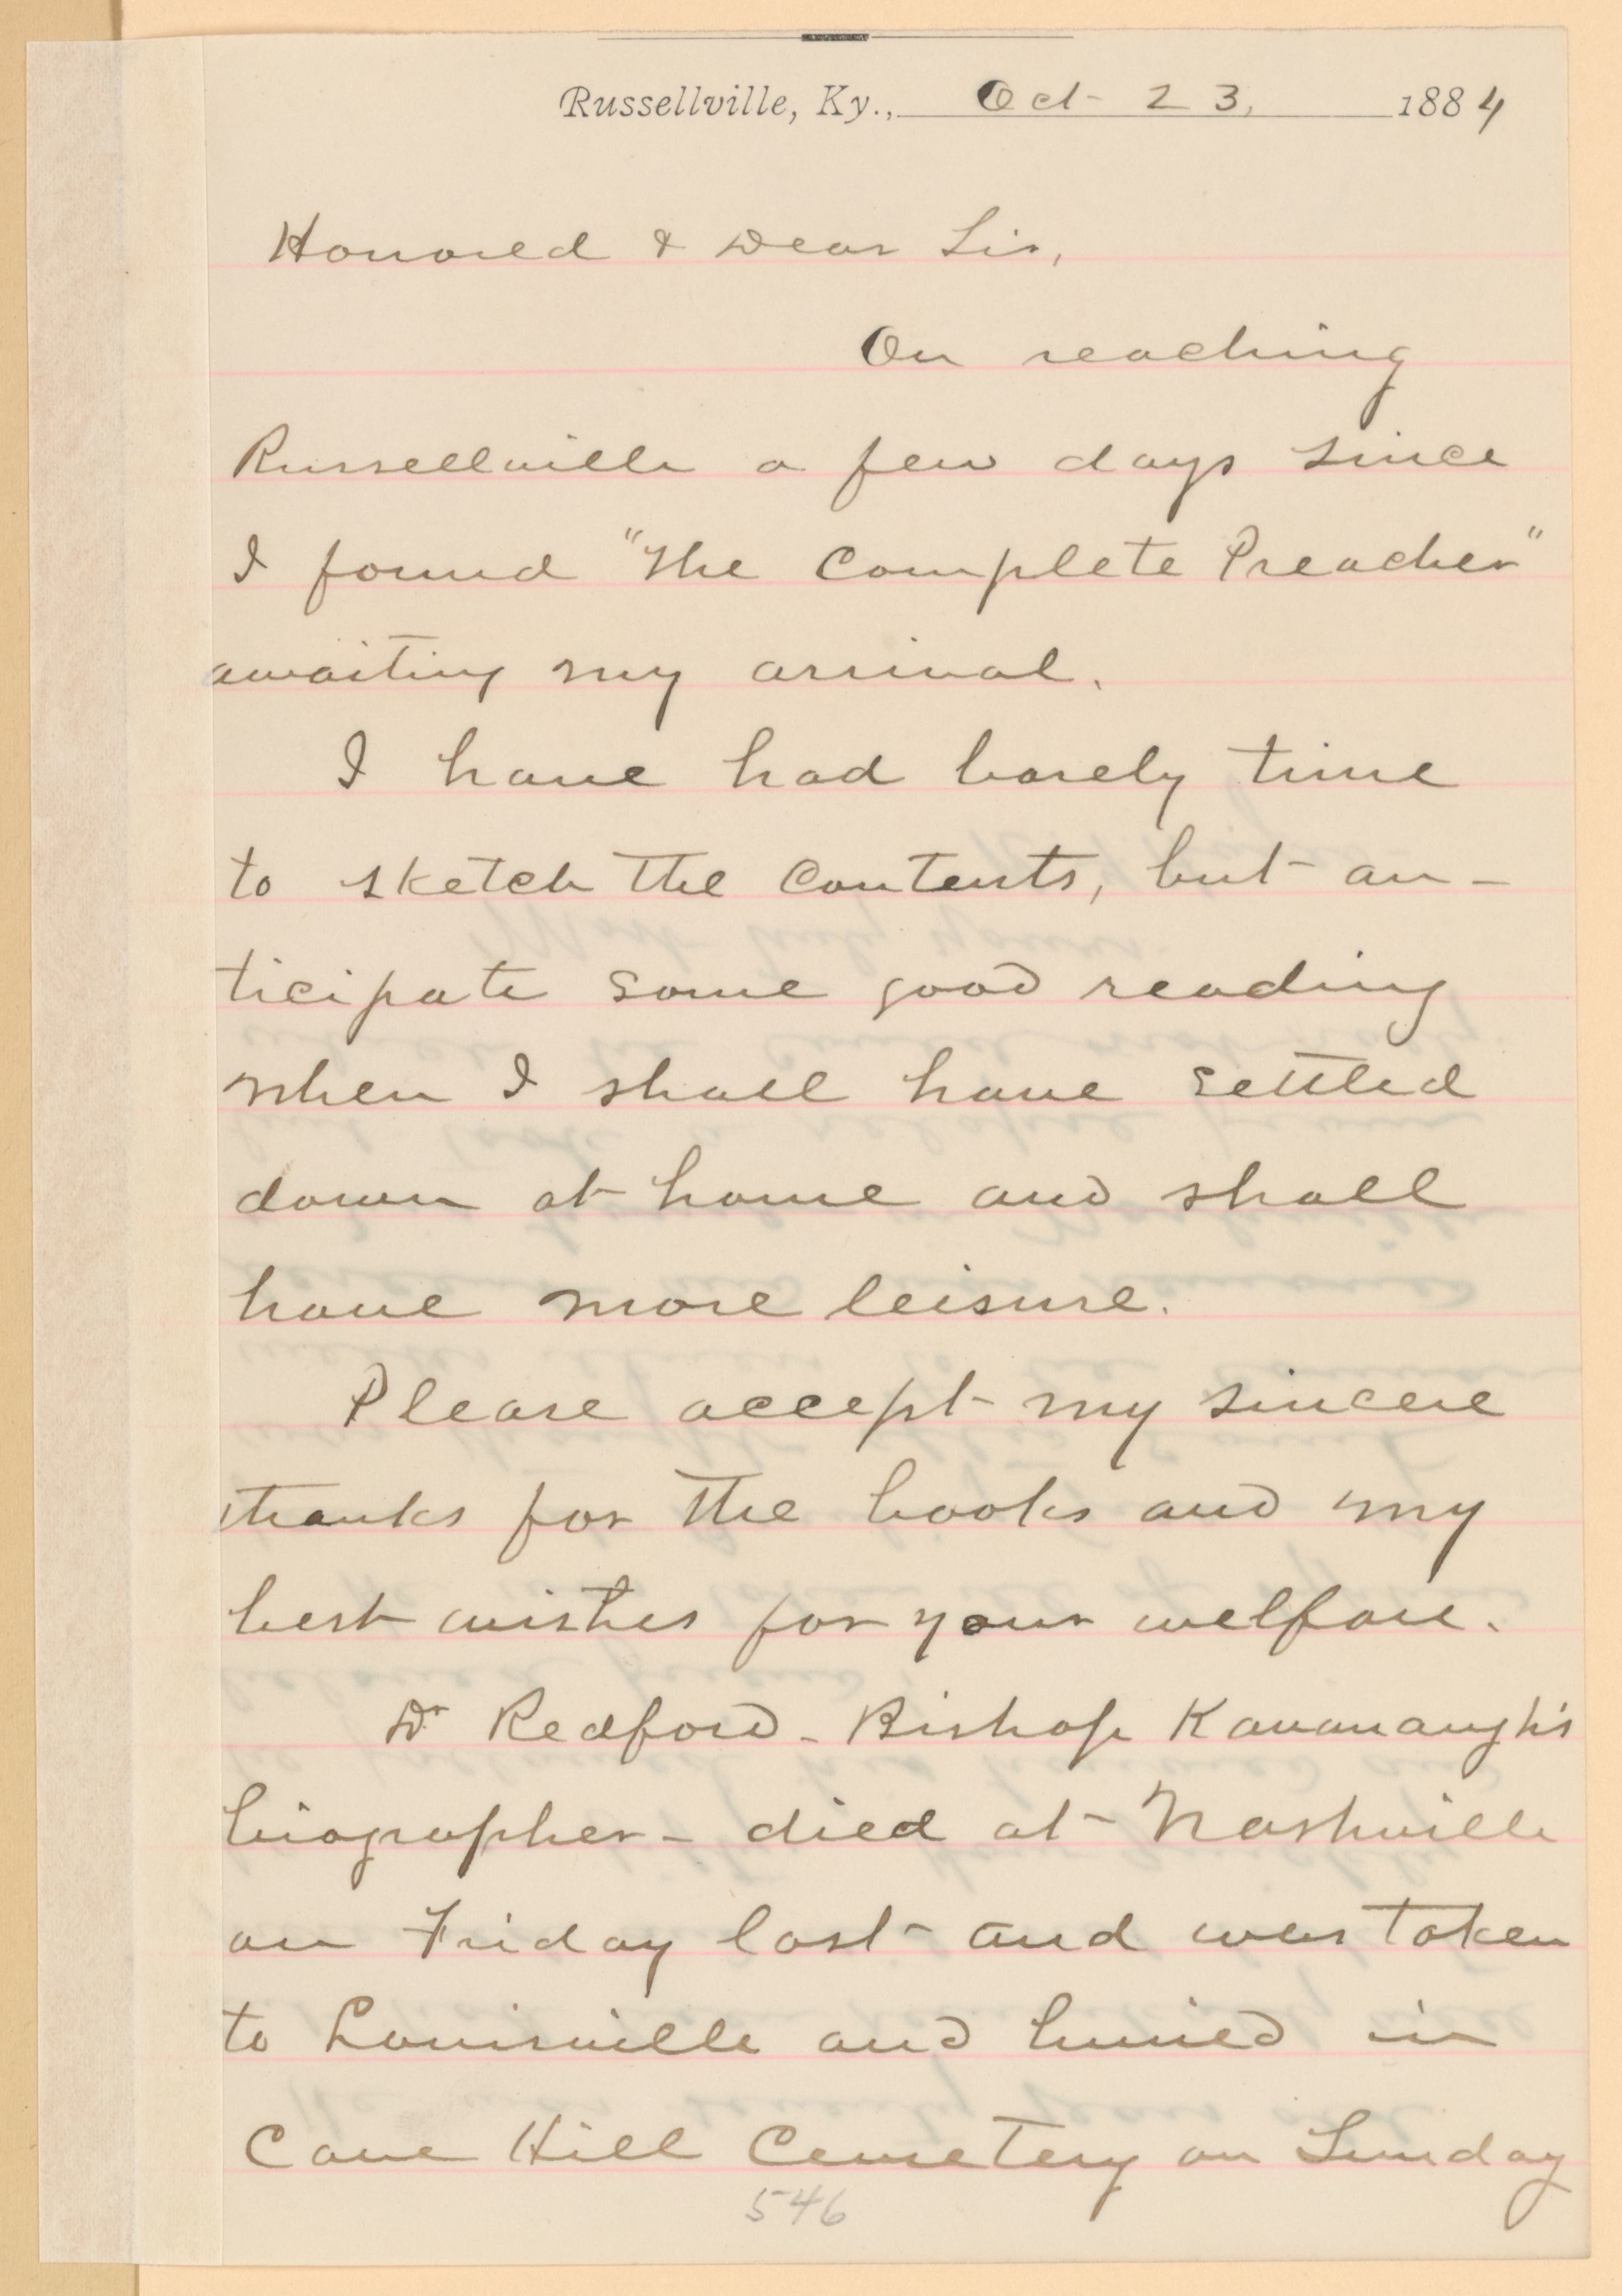 Russellville, Ky., Oct 23, 1884
Honored & Dear Sir,
On reaching
Russellville a few days since
I found "The Complete Preacher"
awaiting my arrival.
I have had barely time
to sketch the contents, but an-
ticipate some good reading
when I shall have settled
down at home and shall
have more leisure.
Please accept my sincere
thanks for the books and my
best wishes for your welfare.
Dr Redford - Bishop Kavanaugh's
biographer - died at Nashville
on Friday last and was taken
to Louisville and buried in
Cave Hill Cemetery on Sunday
546